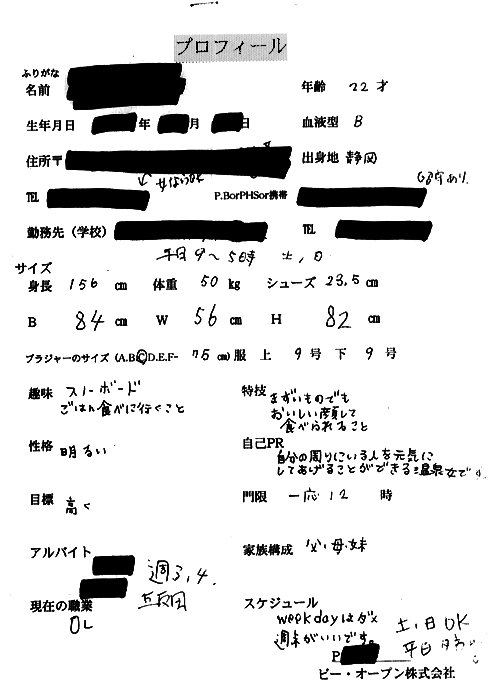 プロフィール
ふりがな
名前
年齢 22才
生年月日 年 月 日
血液型 B
住所〒
出身地 静岡
TEL
P.BorPHSor携帯
勤務先（学校）
TEL
平日9〜5時 土、日
サイズ
身長 156 cm 体重 50 kg シューズ 23,5 cm
B 84 cm W 56 cm H 82 cm
ブラジャーのサイズ (A.B.C.D.E.F- 75 cm) 服 上 9号 下 9号
趣味 スノーボード
ごはん食べに行くこと
特技 まずいものでも
おいしい顔して
食べられること
性格 明るい
自己PR
自分の周りにいる人を元気に
してあげることができる温泉女です
目標 高く
門限 一応12 時
アルバイト
週3,4.
五反田
家族構成 父・母・妹
現在の職業
OL
スケジュール
weekdayはダメ
週末がいいです。
土、日OK
平日
P
ビー・オープン株式会社